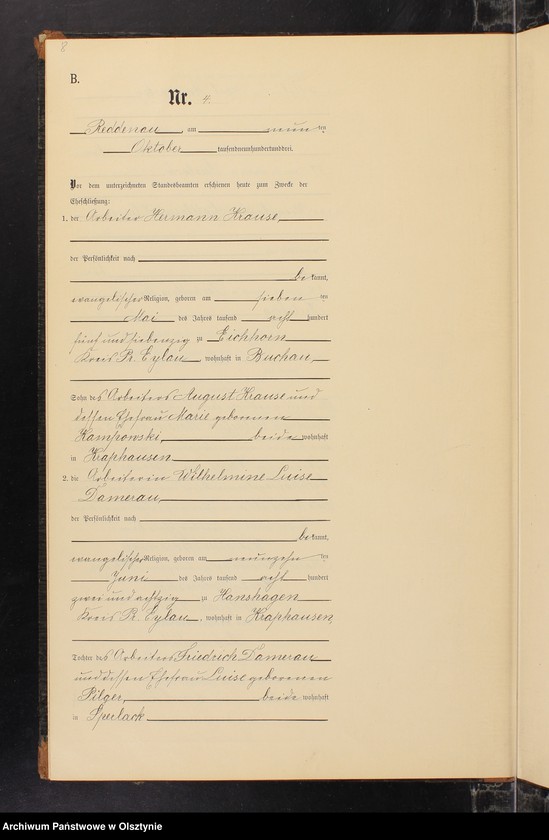 8
B.
Nr. 4.
Reddenau, am neunten
Oktober tausendneunhundertunddrei.
Vor dem unterzeichneten Standesbeamten erschienen heute zum Zwecke der
Eheschließung:
1. der Arbeiter Hermann Krause
der Persönlichkeit nach
bekannt,
evangelischer Religion, geboren am sieben ten
Mai des Jahres tausend acht hundert
fünf und siebenzig zu Eichhorn
Kreis Pr. Eylau, wohnhaft in Buchau,
Sohn des Arbeiters August Krause und
dessen Ehefrau Marie geborenen
Kampowski, beide wohnhaft
in Kraphausen
2. die Arbeiterin Wilhelmine Luise
Damerau,
der Persönlichkeit nach
bekannt,
evangelischer Religion, geboren am neunzehn ten
Juni des Jahres tausend acht hundert
zwei und achtzig zu Hanshagen
Kreis Pr. Eylau, wohnhaft in Kraphausen,
Tochter des Arbeiters Friedrich Damerau
und dessen Ehefrau Luise geborenen
Pilger, beide wohnhaft
in Sperlack
Archiwum Państwowe w Olsztynie